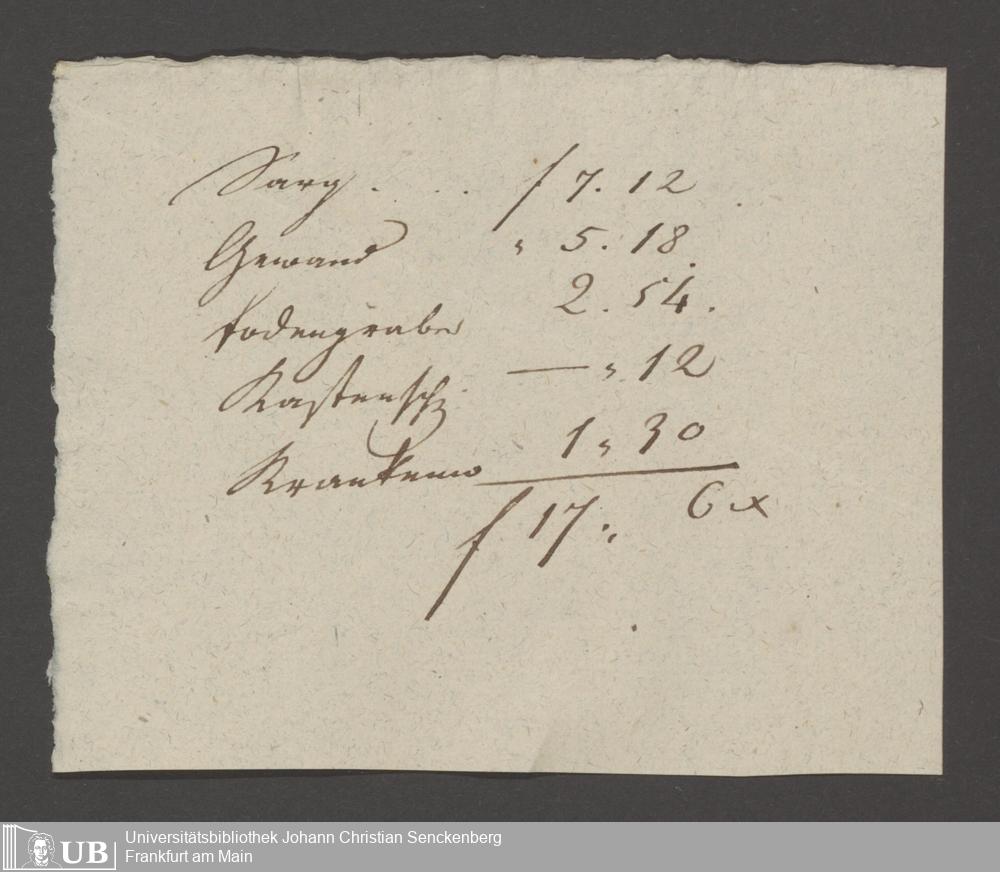 Sarg . . . f 7. 12
Gewand " 5. 18.
todengraber 2. 54.
Kastensch — " 12
Krankenw 1 " 30
f 17 " 6 x
UB
Universitätsbibliothek Johann Christian Senckenberg
Frankfurt am Main